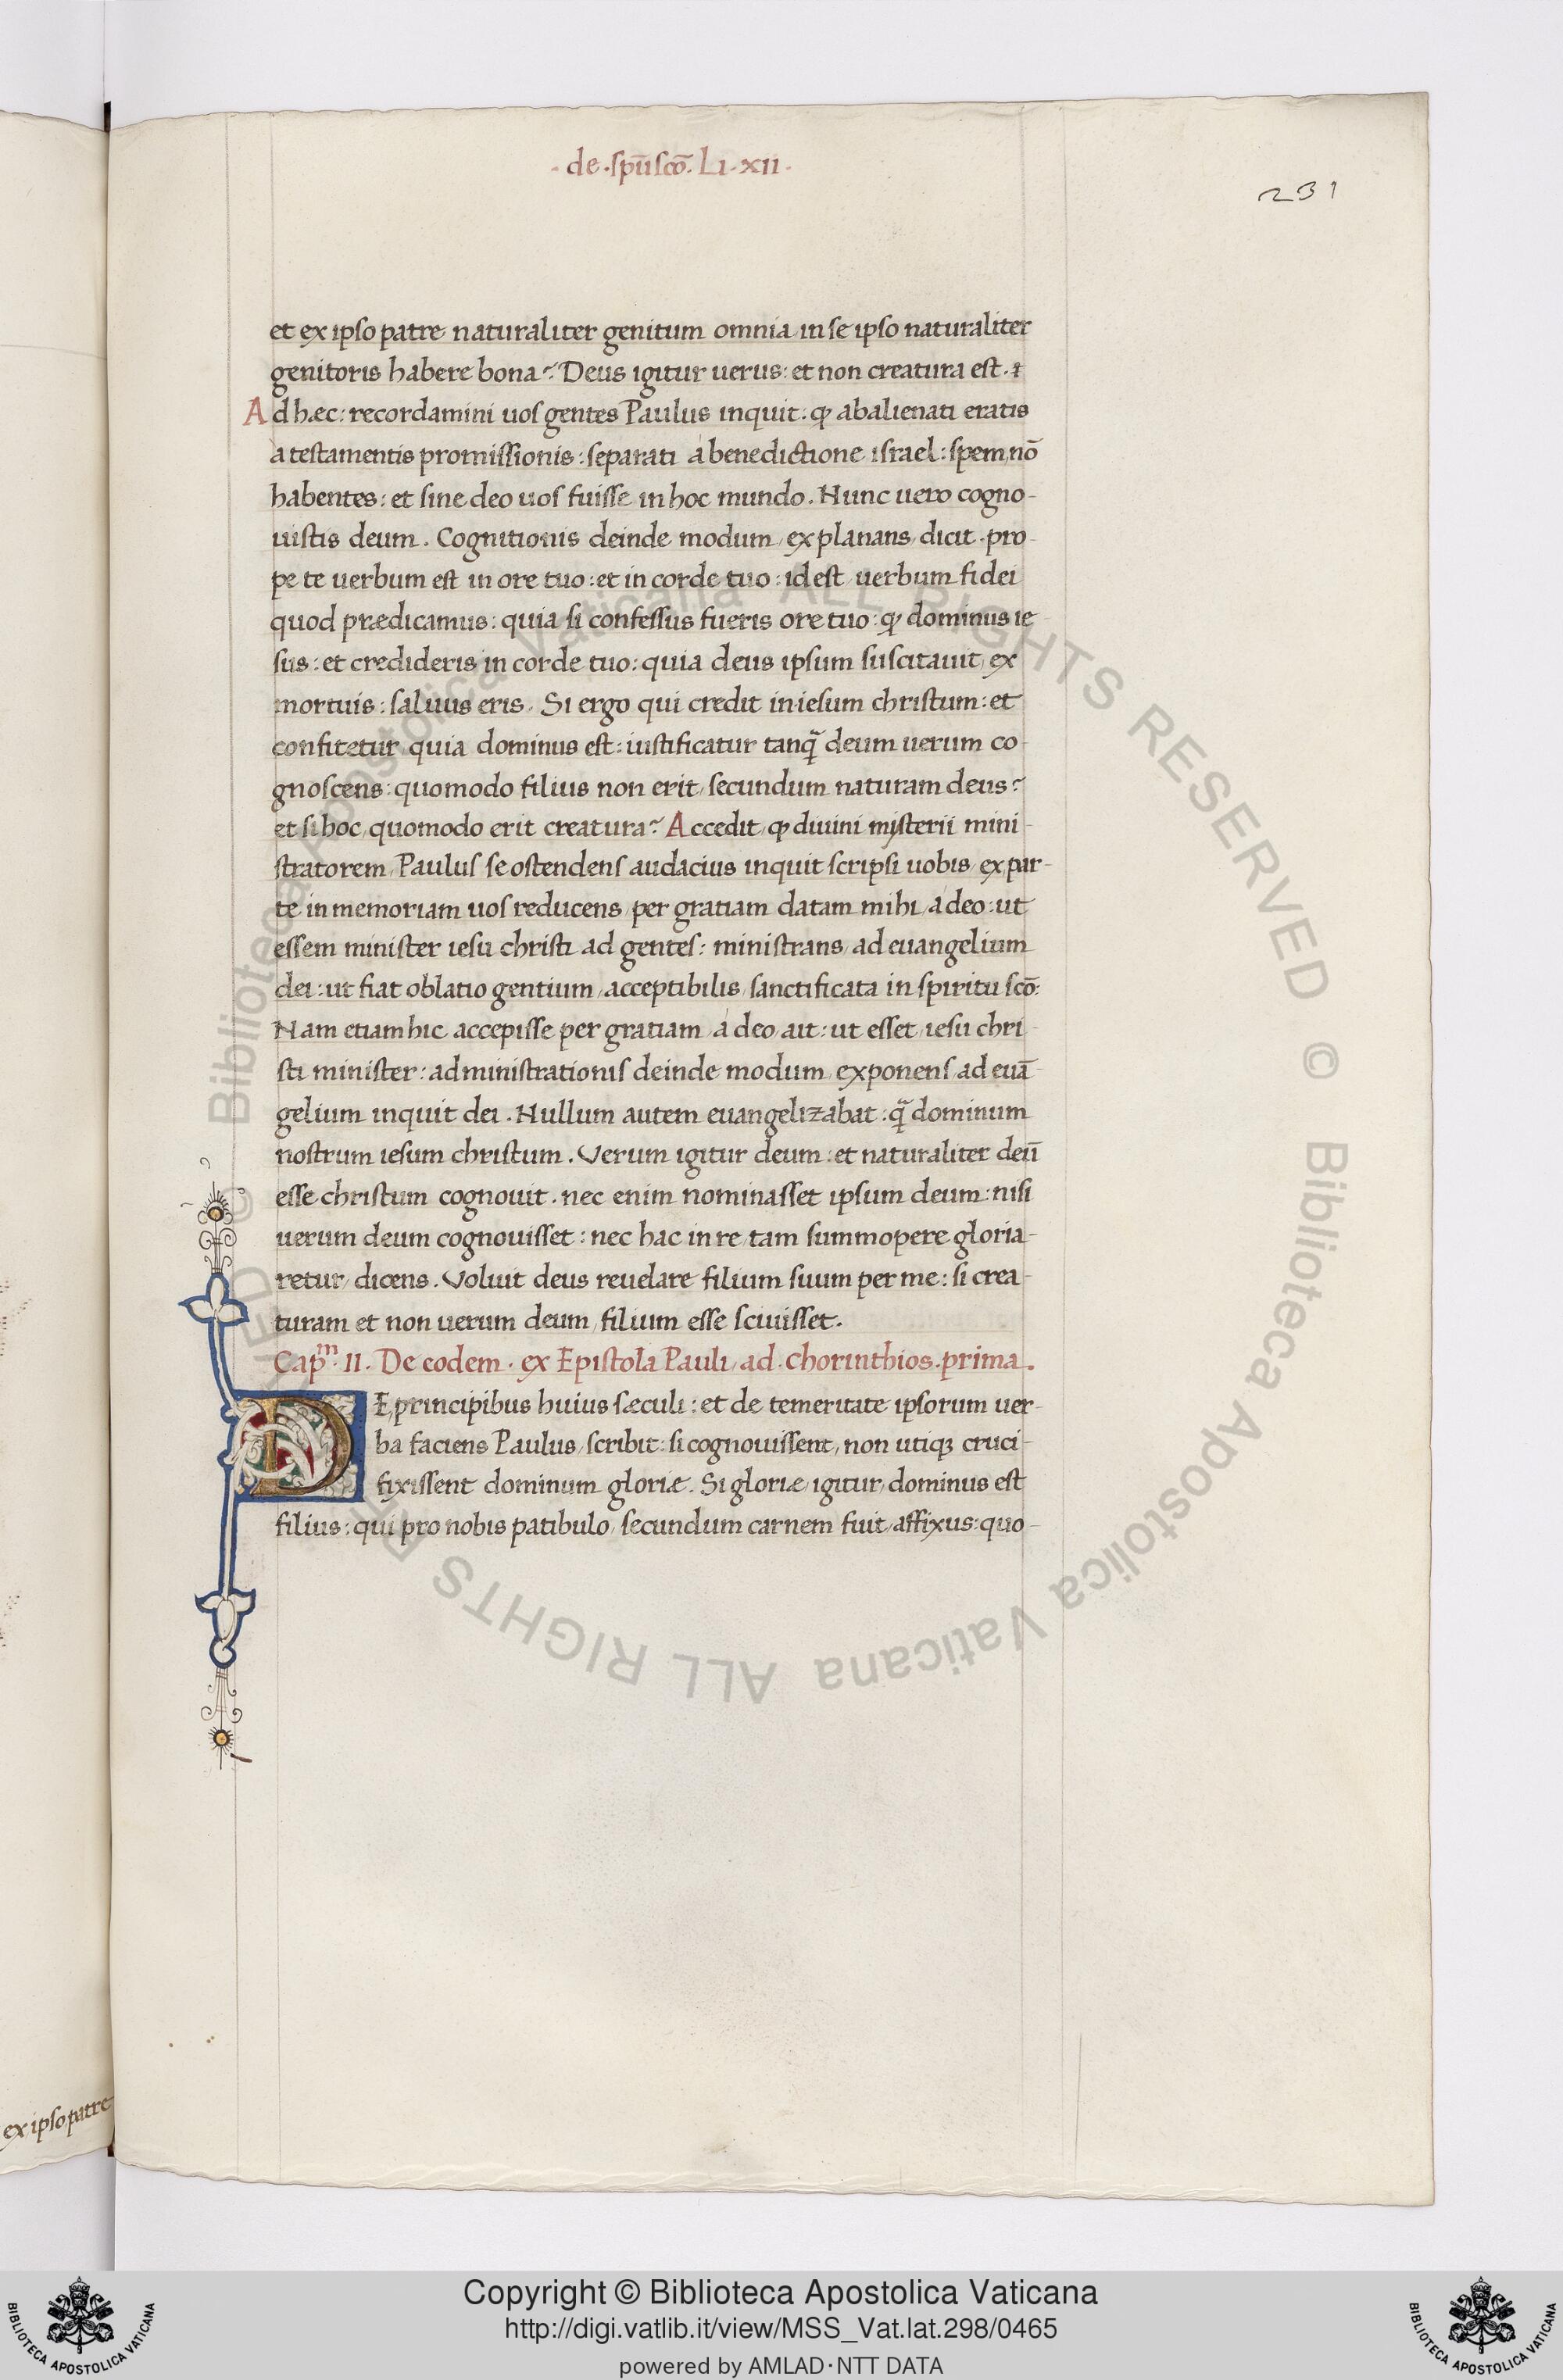 · de · sp̄u sc̄o · Li · xii ·
231
et ex ipso patre naturaliter genitum omnia in se ipso naturaliter
genitoris habere bona? Deus igitur uerus: et non creatura est.
Ad hæc: recordamini uos gentes Paulus inquit. ꝙ abalienati eratis
a testamentis promissionis: separati a benedictione israel: spem nō
habentes: et sine deo uos fuisse in hoc mundo. Nunc uero cogno-
uistis deum. Cognitionis deinde modum explanans dicit. pro-
pe te uerbum est in ore tuo: et in corde tuo: id est uerbum fidei
quod prædicamus: quia si confessus fueris ore tuo: ꝙ dominus ie-
sus: et credideris in corde tuo: quia deus ipsum suscitauit ex
mortuis: saluus eris. Si ergo qui credit in iesum christum: et
confitetur quia dominus est: iustificatur tanq̄ deum uerum co-
gnoscens: quomodo filius non erit secundum naturam deus?
et si hoc, quomodo erit creatura? Accedit ꝙ diuini misterii mini-
stratorem Paulus se ostendens audacius inquit scripsi uobis ex par-
te in memoriam uos reducens per gratiam datam mihi a deo: ut
essem minister iesu christi ad gentes: ministrans ad euangelium
dei: ut fiat oblatio gentium acceptibilis sanctificata in spiritu sc̄o:
Nam etiam hic accepisse per gratiam a deo ait: ut esset iesu chri-
sti minister: administrationis deinde modum exponens ad euā-
gelium inquit dei. Nullum autem euangelizabat: q̄ dominum
nostrum iesum christum. Verum igitur deum: et naturaliter deū
esse christum cognouit. nec enim nominasset ipsum deum: nisi
uerum deum cognouisset: nec hac in re tam summopere gloria-
retur dicens. Voluit deus reuelare filium suum per me: si crea-
turam et non uerum deum filium esse sciuisset.
Cap^m. II. De eodem. ex Epistola Pauli ad chorinthios prima.
DE principibus huius sæculi: et de temeritate ipsorum uer-
ba faciens Paulus scribit: si cognouissent, non utiqꝫ cruci-
fixissent dominum gloriæ. Si gloriæ igitur dominus est
filius: qui pro nobis patibulo secundum carnem fuit affixus: quo-
ex ipso patre
© Biblioteca Apostolica Vaticana ALL RIGHTS RESERVED © Biblioteca Apostolica Vaticana ALL RIGHTS RESERVED
Copyright © Biblioteca Apostolica Vaticana
http://digi.vatlib.it/view/MSS_Vat.lat.298/0465
powered by AMLAD·NTT DATA
BIBLIOTECA APOSTOLICA VATICANA
BIBLIOTECA APOSTOLICA VATICANA